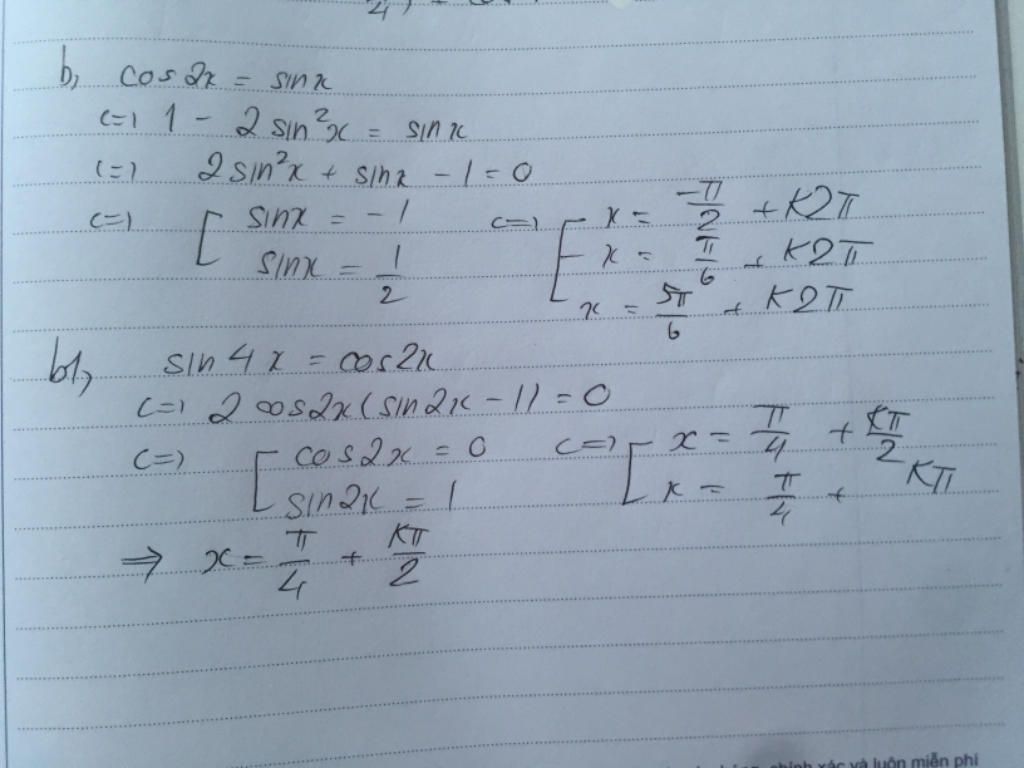 b, cos2x = sinx
<=> 1 - 2sin²x = sinx
<=> 2sin²x + sinx - 1 = 0
<=> [ sinx = -1 <=> [ x = -π/2 + K2π
sinx = 1/2 x = π/6 + K2π
x = 5π/6 + K2π
b1, sin4x = cos2x
<=> 2cos2x(sin2x - 1) = 0
<=> [ cos2x = 0 <=> [ x = π/4 + Kπ/2
sin2x = 1 x = π/4 + Kπ
⇒ x = π/4 + Kπ/2
chính xác và luôn miễn phí